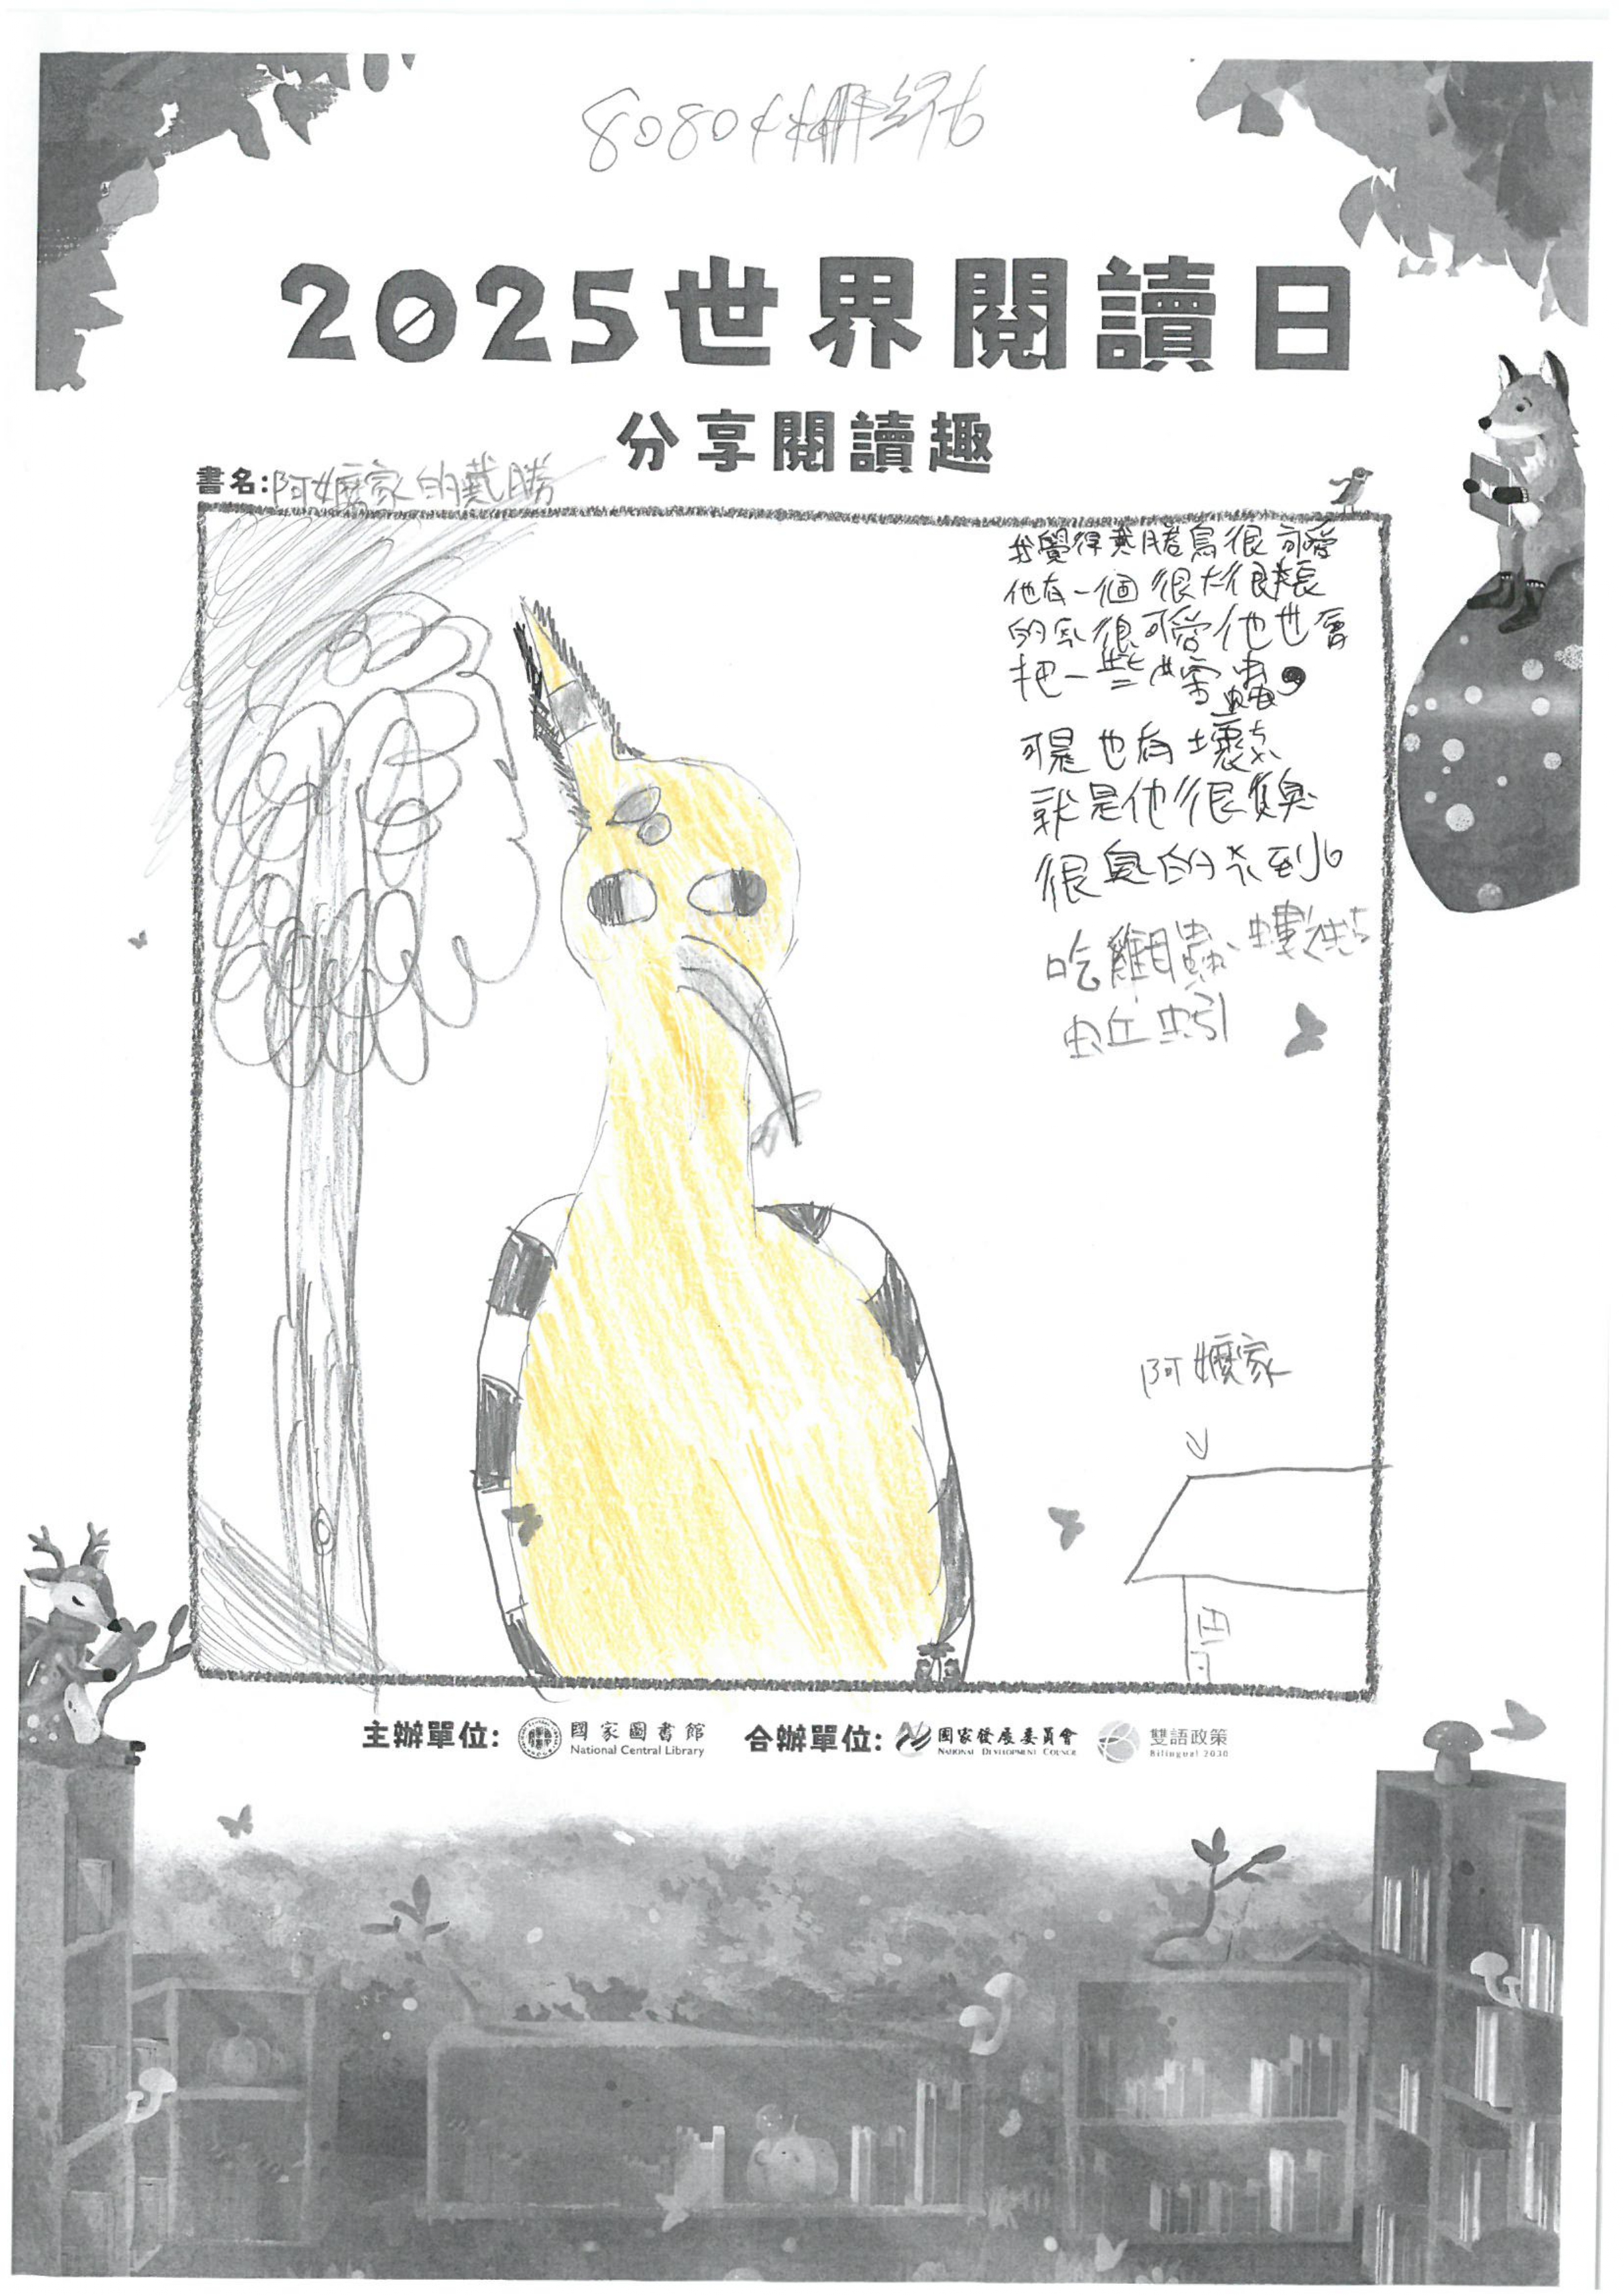 80804
2025世界閱讀日
分享閱讀趣
書名:阿嬤家的戴勝
我覺得戴勝鳥很可愛
他有一個很大很長
的 很可愛他也會
把一些
可是也有壞
就是他很臭
很臭的
吃雞母蟲、螻
蚯蚓
阿嬤家
主辦單位: 國家圖書館 National Central Library 合辦單位: 國家發展委員會 National Development Council 雙語政策 Bilingual 2030